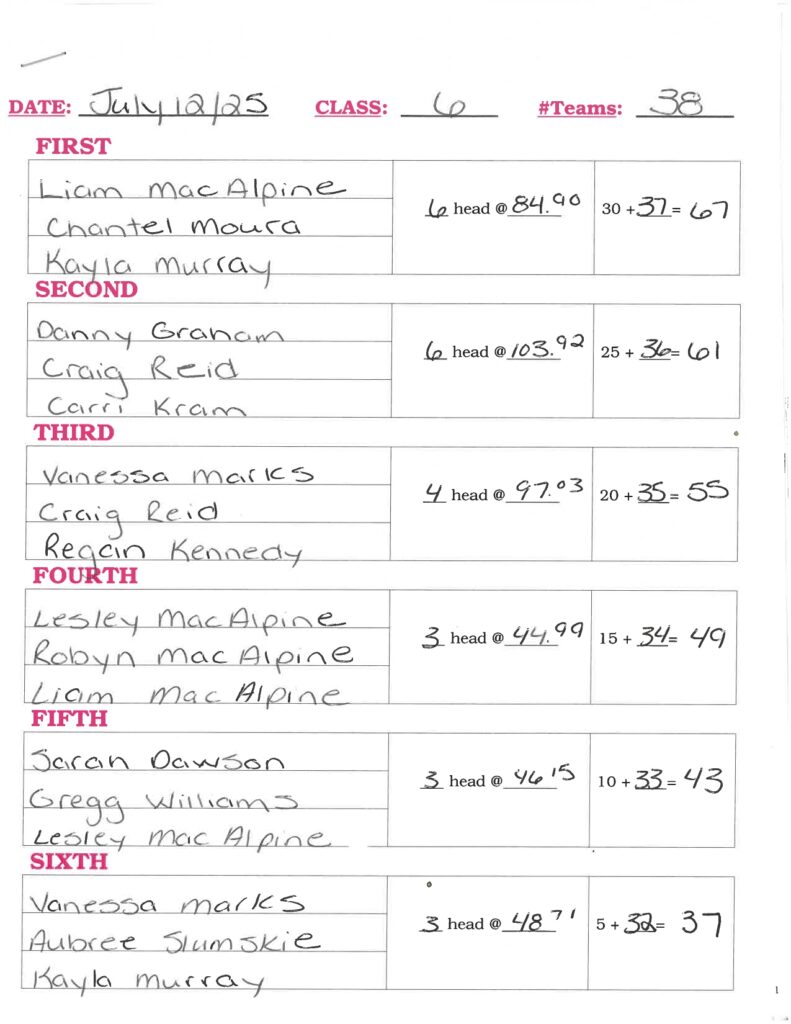 DATE: July 12/25 CLASS: 6 #Teams: 38
FIRST
Liam MacAlpine
Chantel Moura
Kayla Murray
6 head @ 84.90
30 + 37 = 67
SECOND
Danny Graham
Craig Reid
Carri Kram
6 head @ 103.92
25 + 36 = 61
THIRD
Vanessa Marks
Craig Reid
Regan Kennedy
4 head @ 97.03
20 + 35 = 55
FOURTH
Lesley MacAlpine
Robyn MacAlpine
Liam MacAlpine
3 head @ 44.99
15 + 34 = 49
FIFTH
Sarah Dawson
Gregg Williams
Lesley MacAlpine
3 head @ 46 15
10 + 33 = 43
SIXTH
Vanessa Marks
Aubree Slumskie
Kayla Murray
3 head @ 48 71
5 + 32 = 37
1